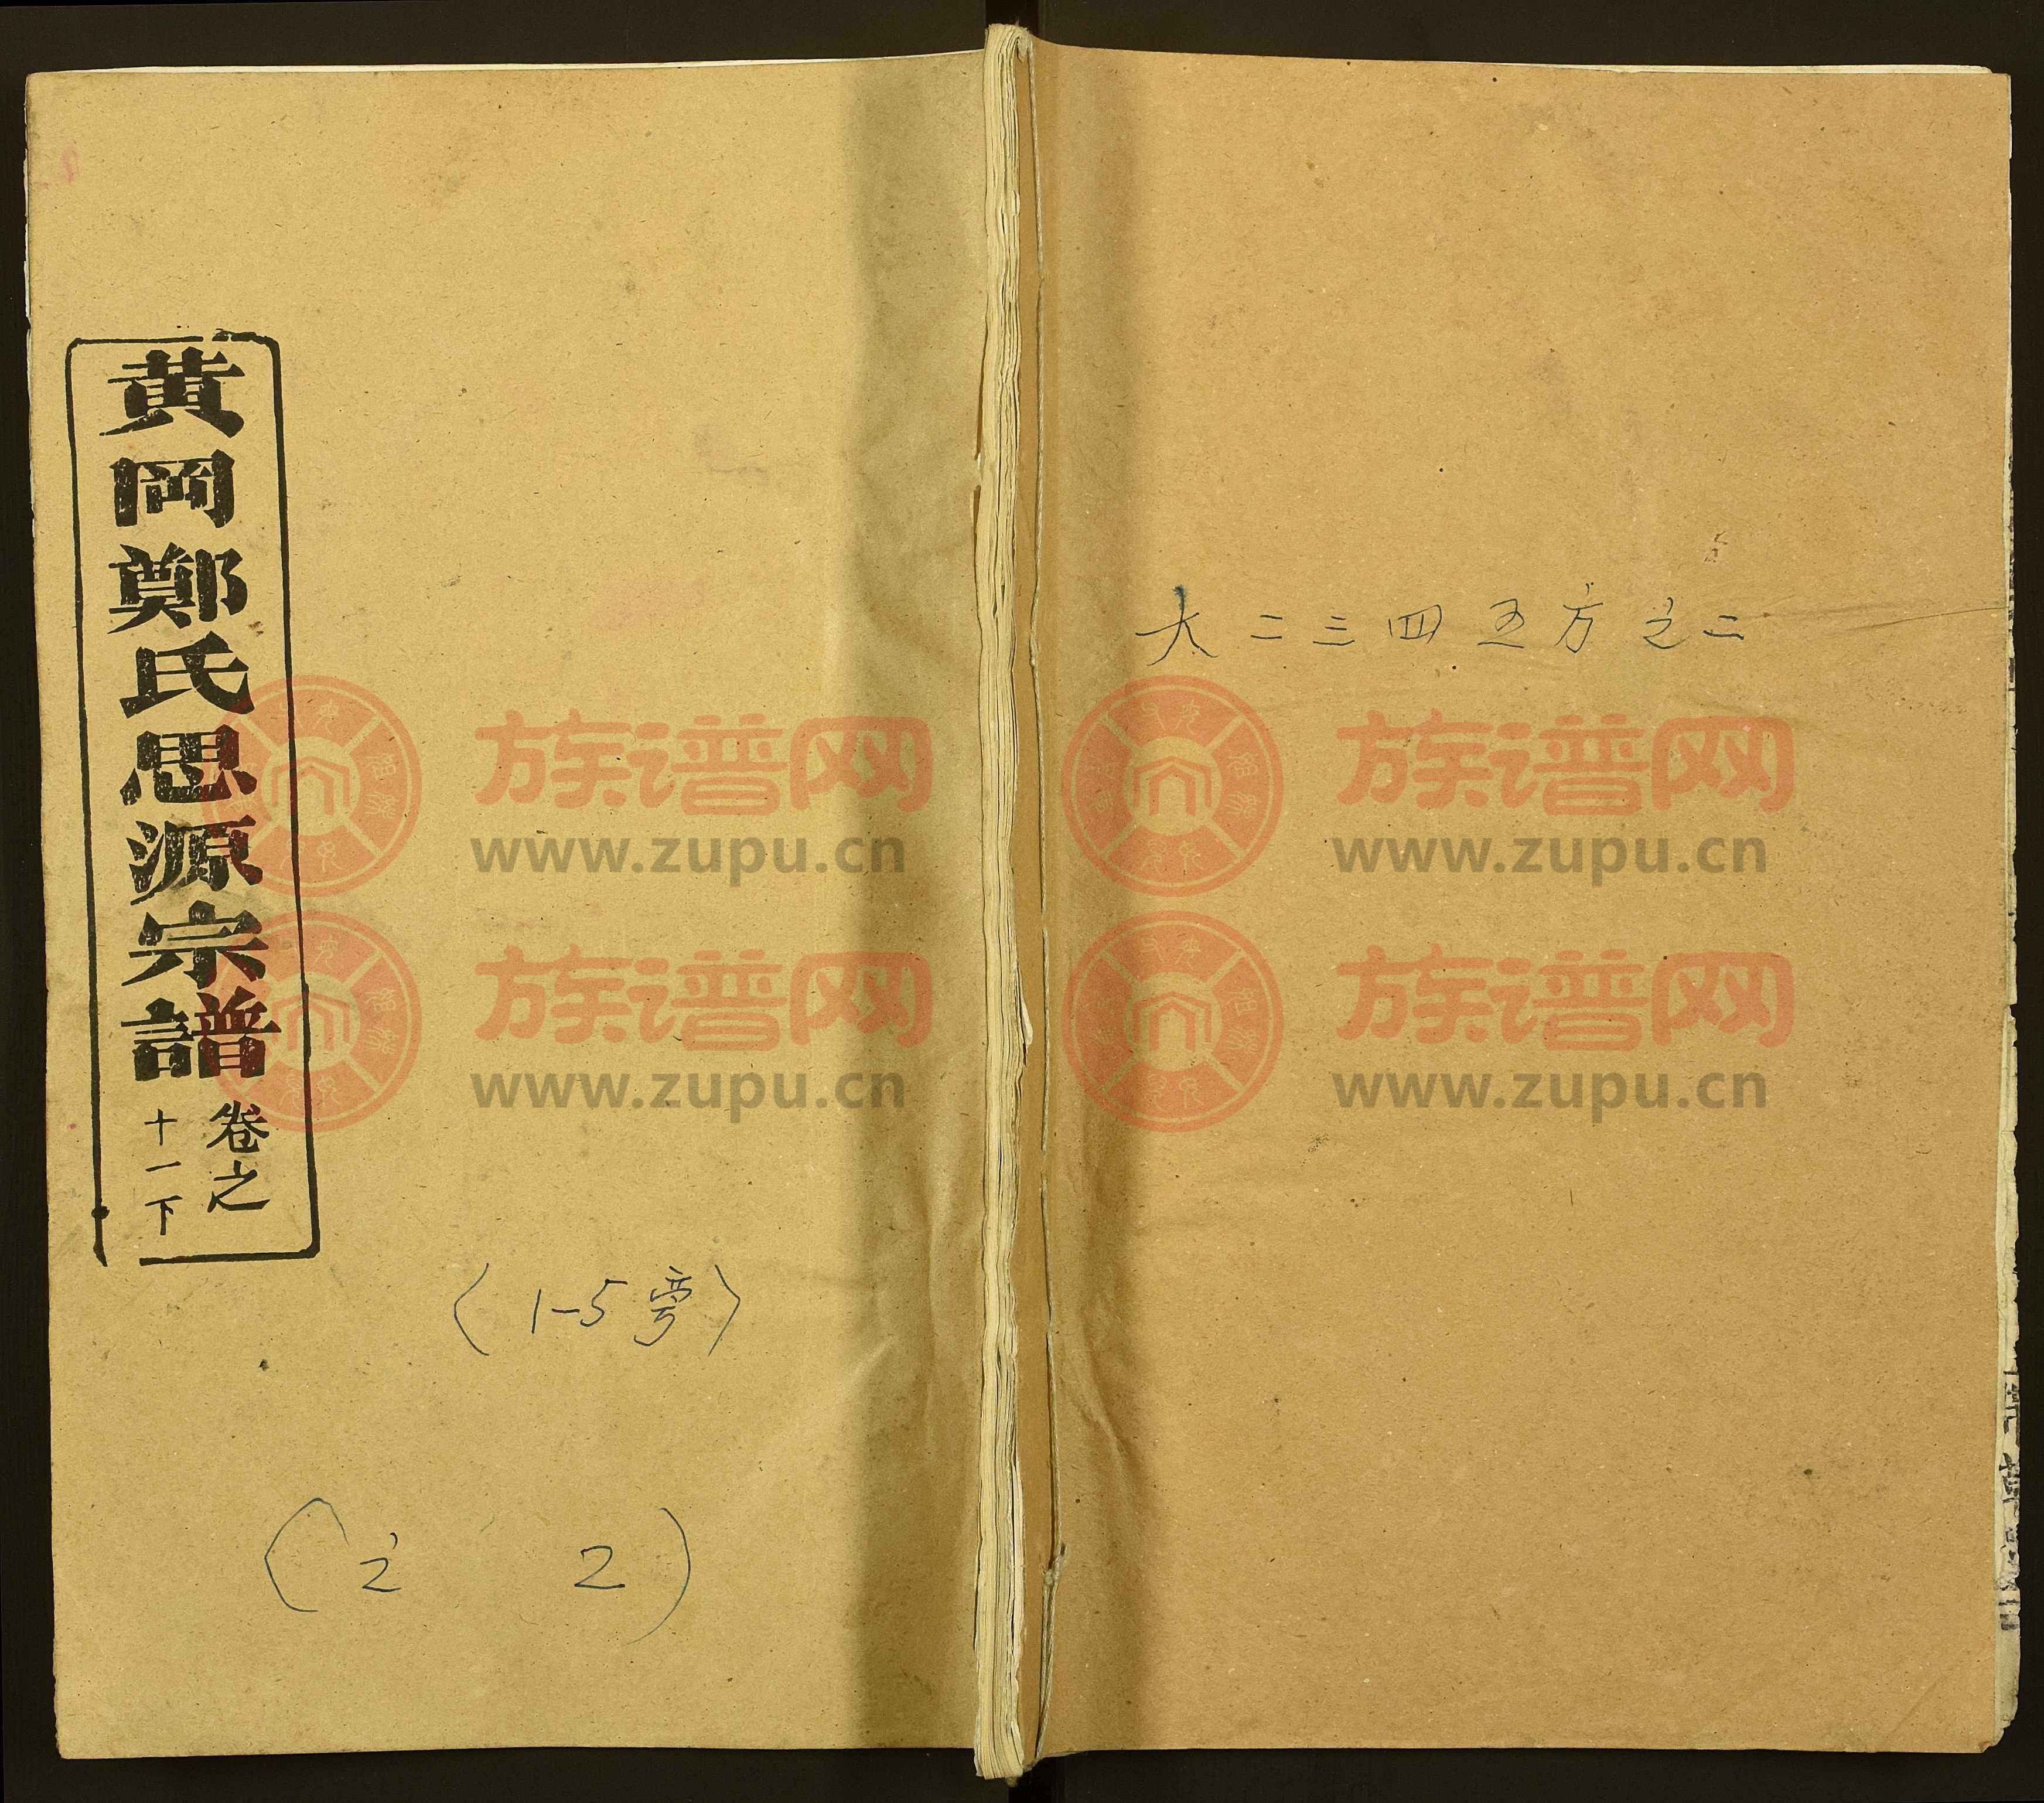 黃岡鄭氏思源宗譜
卷之
十一下
(1-5房)
(之 2)
大二三四五方之二
族谱网
www.zupu.cn
族谱网
www.zupu.cn
族谱网
www.zupu.cn
族谱网
www.zupu.cn